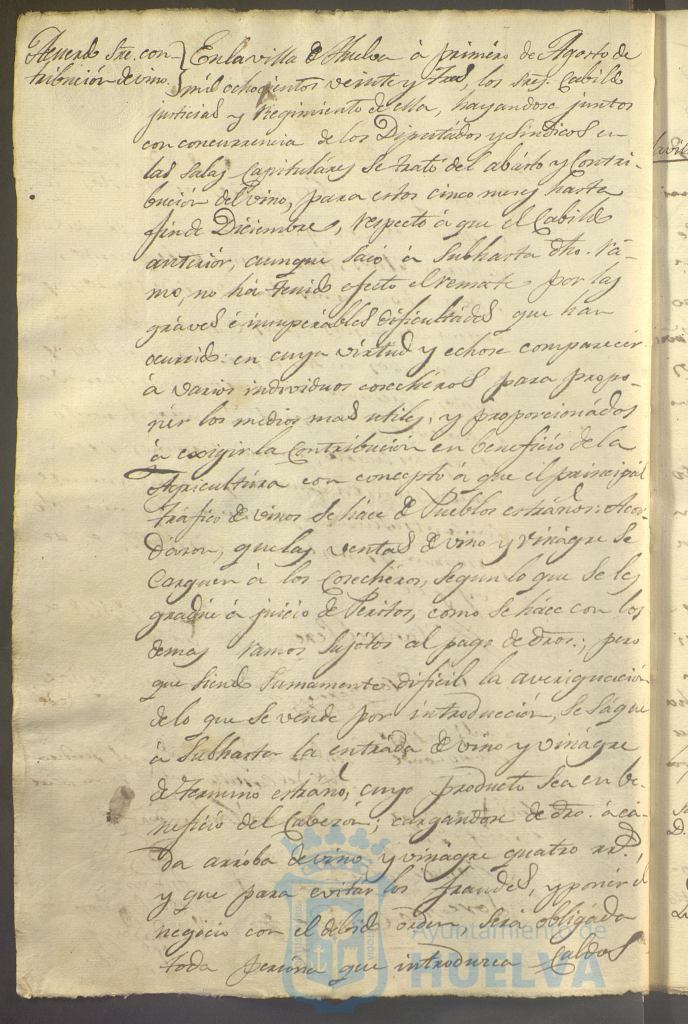 Acuerdo Sre. con-
tribución de vino.
En la villa de Huelva à primero de Agosto de
mil ochocientos veinte y tres, los Sres. Cabildo
justicias y Regimiento de ella, hayandose juntos
con concurrencia de los Diputados y Sindicos en
las Salas Capitulares se trató del abasto y Contri-
bución del vino, para estos cinco meses hasta
fin de Diciembre, respecto à que el Cabildo
anterior, aunque sacó à Subhasta dho. Ra-
mo, no há tenido efecto el remate por las
graves è insuperables dificultades que han
ocurrido: en cuya virtud y echose comparecer
à varios individuos cosecheros para propo-
ner los medios mas utiles, y proporcionados
à exigir la contribución en beneficio de la
Agricultura con concepto à que el principal
tráfico de vinos se háce de Pueblos estraños: Acor-
daron, que las ventas de vino y vinagre se
carguen à los Cosecheros, segun lo que se les
gradue à juicio de Peritos, como se háce con los
demas ramos sujetos al pago de dros.; pero
que siendo sumamente dificil la averiguación
de lo que se vende por introducción, se sáque
à Subhasta la entrada de vino y vinagre
de termino estraño, cuyo producto sea en be-
neficio del Cabezón; cargandose de dro. à ca-
da arroba de vino y vinagre quatro rs.
y que para evitar los fraudes, y poner el
negocio con el debido orden, será obligada
toda persona que introduzca Caldos
Ayuntamiento de
HUELVA